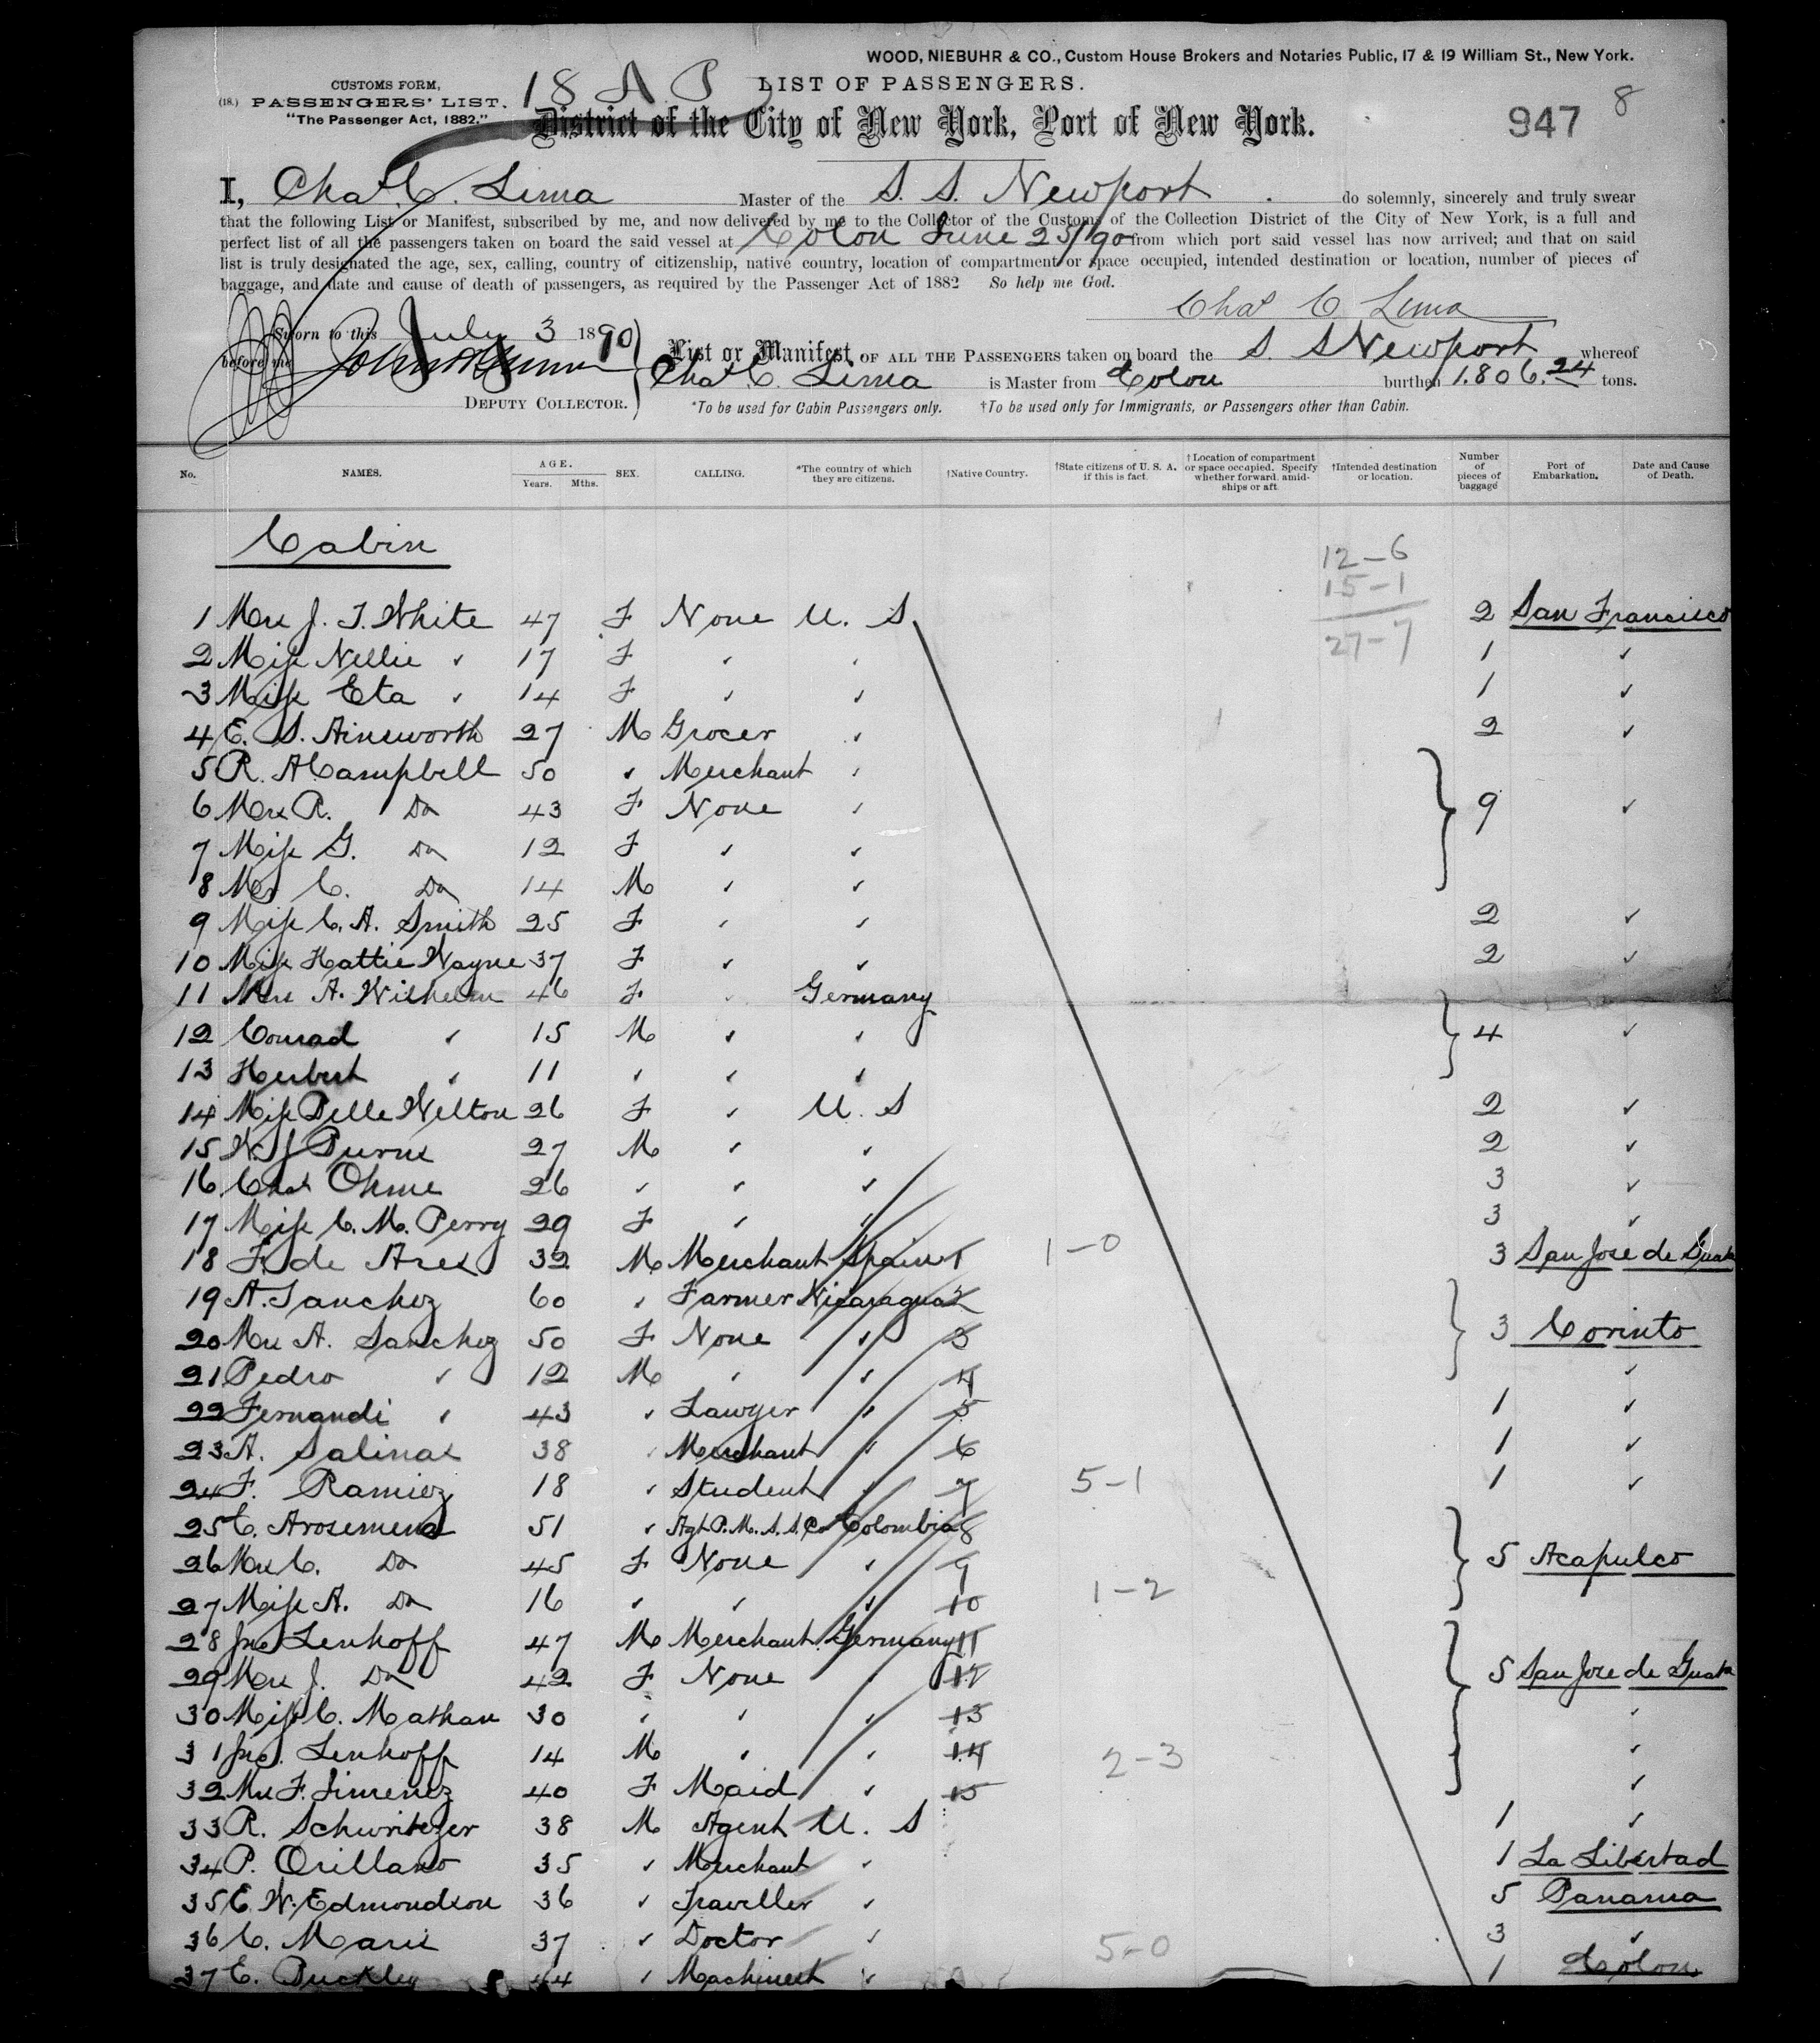 WOOD, NIEBUHR & CO., Custom House Brokers and Notaries Public, 17 & 19 William St., New York.
CUSTOMS FORM,
(18.) PASSENGERS' LIST.
"The Passenger Act, 1882."
18 A P
LIST OF PASSENGERS.
District of the City of New York, Port of New York.
947 8
I, Chas C. Lima Master of the S. S. Newport do solemnly, sincerely and truly swear
that the following List or Manifest, subscribed by me, and now delivered by me to the Collector of the Customs of the Collection District of the City of New York, is a full and
perfect list of all the passengers taken on board the said vessel at Colon June 25/90 from which port said vessel has now arrived; and that on said
list is truly designated the age, sex, calling, country of citizenship, native country, location of compartment or space occupied, intended destination or location, number of pieces of
baggage, and date and cause of death of passengers, as required by the Passenger Act of 1882 So help me God.
Chas C Lima
Sworn to this July 3 1890
before me
DEPUTY COLLECTOR.
List or Manifest OF ALL THE PASSENGERS taken on board the S. S Newport whereof
Chas C. Lima is Master from Colon burthen 1.806.24 tons.
*To be used for Cabin Passengers only. †To be used only for Immigrants, or Passengers other than Cabin.
No. NAMES. AGE. Years. Mths. SEX. CALLING. *The country of which they are citizens. †Native Country. †State citizens of U. S. A. if this is fact. †Location of compartment or space occupied. Specify whether forward, amidships or aft. †Intended destination or location. Number of pieces of baggage Port of Embarkation. Date and Cause of Death.
Cabin
12-6
15-1
27-7
1 Mrs J. T. White 47 F None U. S. 2 San Francisco
2 Miss Nellie " 17 F " " 1 "
3 Miss Eta " 14 F " " 1 "
4 E. S. Ainsworth 27 M Grocer " 2 "
5 R. A Campbell 50 " Merchant "
6 Mrs R. Do 43 F None " 9 "
7 Miss G. Do 12 F " "
8 Mr C. Do 14 M " "
9 Miss C. A. Smith 25 F " " 2 "
10 Miss Hattie Wayne 37 F " " 2 "
11 Mrs A. Wilhelm 46 F " Germany
12 Conrad " 15 M " " 4 "
13 Herbert " 11 " " "
14 Miss Belle Welton 26 F " U. S 2 "
15 W. J Burns 27 M " " 2 "
16 Chas Ohme 26 " " " 3 "
17 Miss C. M. Perry 29 F " " 3 "
18 F. de Ares 32 M Merchant Spain 1 1-0 3 San Jose de Guata
19 A. Sanchez 60 " Farmer Nicaragua 2
20 Mrs A. Sanchez 50 F None " 3 3 Corinto
21 Pedro " 12 M " " 4 "
22 Fernandi " 43 " Lawyer " 5 1 "
23 A. Salinas 38 " Merchant " 6 1 "
24 F. Ramiez 18 " Student " 7 5-1 1 "
25 C. Arosemena 51 " Agt P. M. S. S. Co Colombia 8
26 Mrs C. Do 45 F None " 9 5 Acapulco
27 Miss A. Do 16 " " " 10 1-2
28 Jno Lenhoff 47 M Merchant Germany 11
29 Mrs J. Do 42 F None " 12 5 San Jose de Guata
30 Miss C. Mathan 30 " " " 13 "
31 Jno. Lenhoff 14 M " " 14 2-3 "
32 Mrs F. Jimenez 40 F Maid " 15 "
33 R. Schwritzer 38 M Agent U. S 1 "
34 P. Orillano 35 " Merchant " 1 La Libertad
35 E. W. Edmondson 36 " Traveller " 5 Panama
36 C. Maris 37 " Doctor " 5-0 3 "
37 E. Buckley 44 " Machinest " 1 Colon